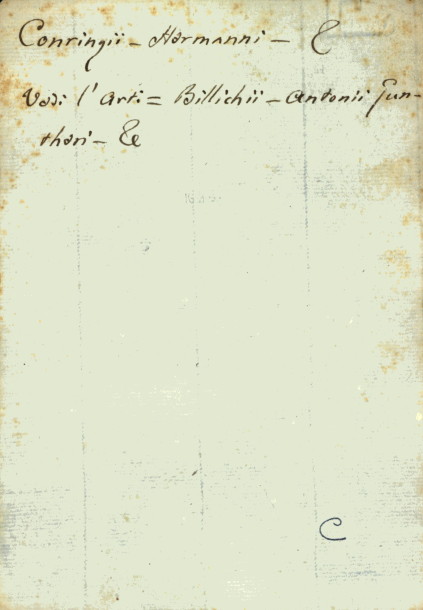 Conringii - Hermanni - &
Vedi l' Art: = Billichii - Antonii Gun-
theri - &
C